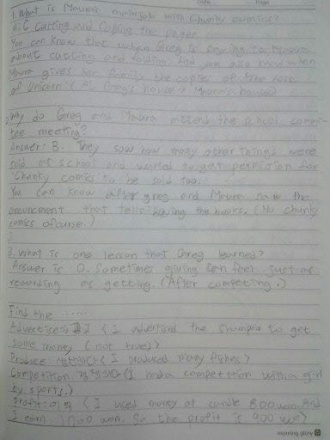 1. What is Maura's mistake with Chunky Comics?
A: C Cutting and Copying the paper.
You can know that when Greg is saying to Maura
about cutting and folding. And we also know when
Maura gives her family the copies of
of Unicorn (At Greg's house & Maura's house)
Why do Greg and Maura attend the school
tee meeting?
Answer: B. They saw how many other things were
sold at school and wanted to get permission for
Chunky Comics to be sold too.
You can know when greg and Maura saw the
announcement that tells the books. (No chunky
comics of course.)
3. What is one lesson that Greg learned?
Answer is D. Sometimes giving can feel just as
rewarding as getting. (After competing.)
Find the ......
Advertise (I advertised the shampoo to get
some money (not true))
Produce (I produced many fishes)
Competition (I make a competition with a girl
by sports.)
Profit (I used money at 800 won And
I earn 1700 won. So the profit is 900 won)
morning glory